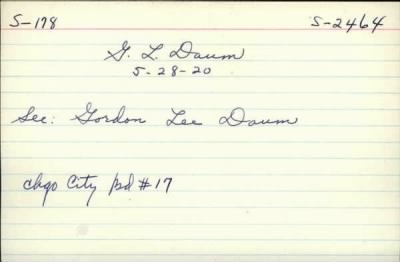 S-178 S-2464
G. L. Daum
5-28-20
See: Gordon Lee Daum
chgo City bd #17